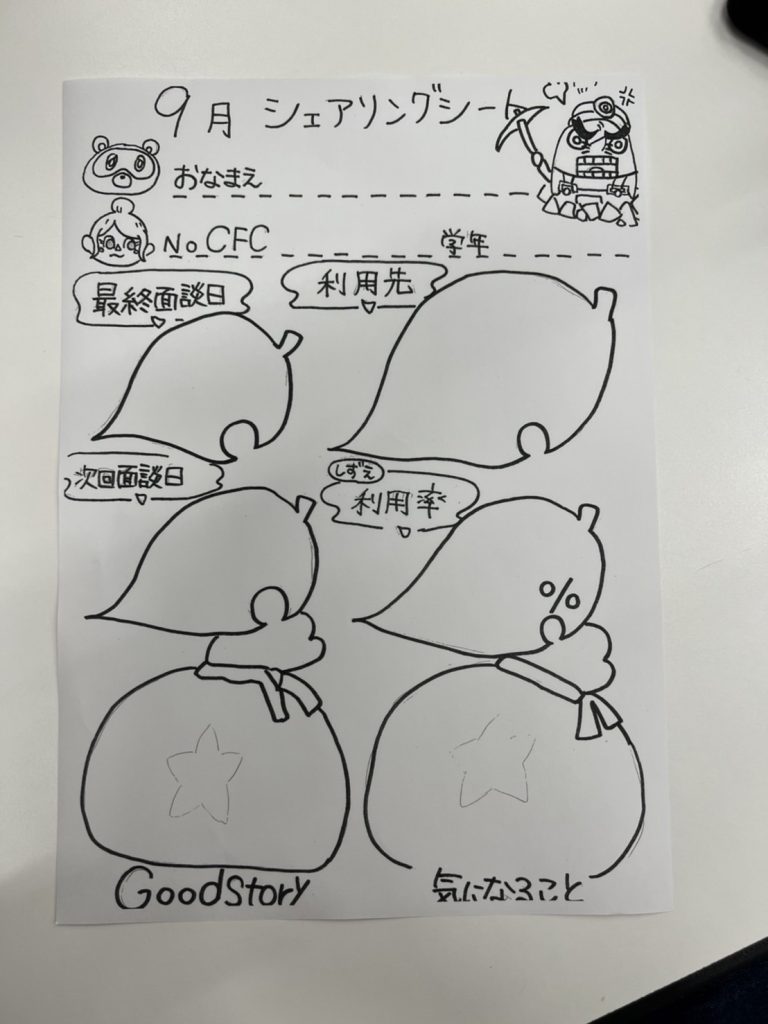 9月 シェアリングシート
おなまえ
No CFC 学年
最終面談日 利用先
次回面談日 しずえ
利用率
%
GoodStory 気になること